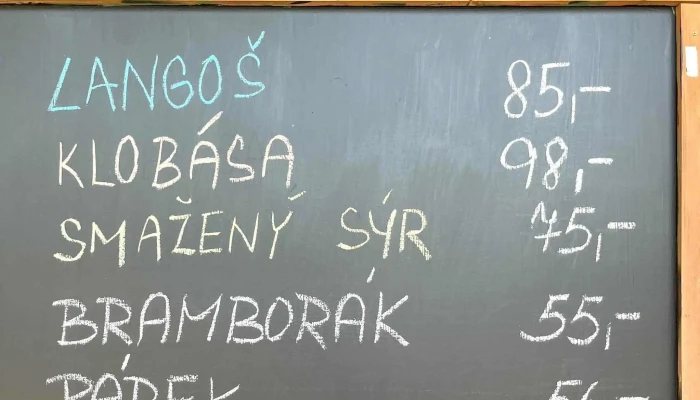 LANGOŠ 85,-
KLOBÁSA 98,-
SMAŽENÝ SÝR 75,-
BRAMBORÁK 55,-
PÁREK